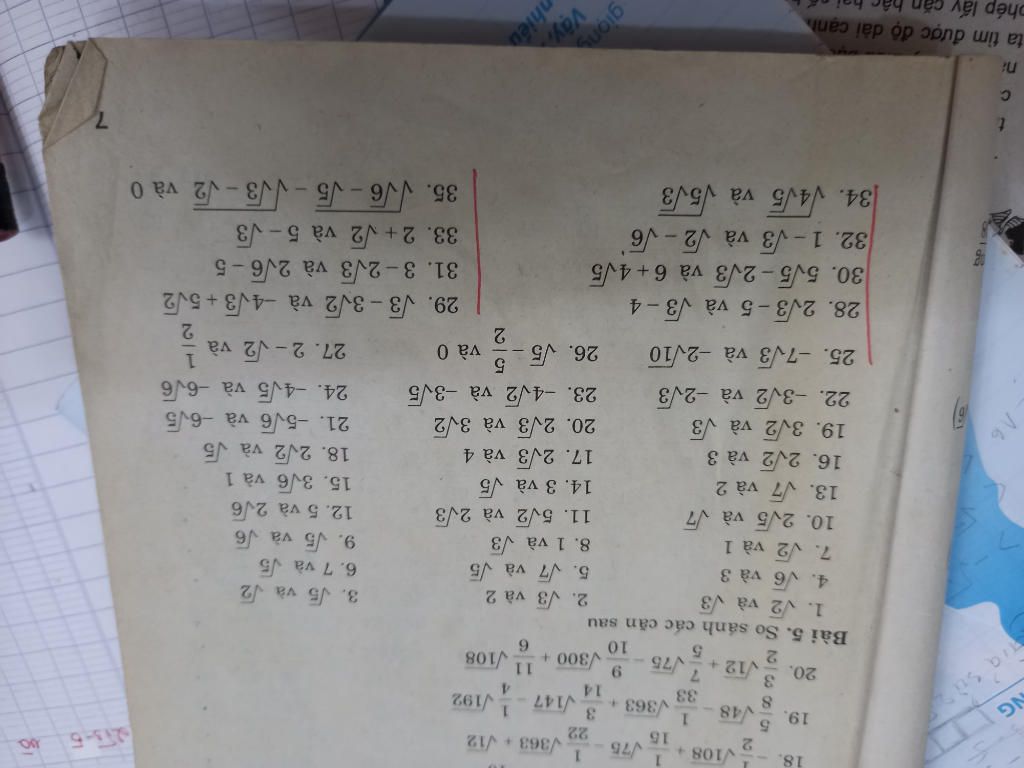 18. 1/2 √108 + 1/15 √75 − 1/22 √363 + √12
19. 5/8 √48 − 1/33 √363 + 3/14 √147 − 1/4 √192
20. 3/2 √12 + 7/5 √75 − 9/10 √300 + 11/6 √108
Bài 5. So sánh các căn sau
1. √2 và √3 2. √3 và 2 3. √5 và √2
4. √6 và 3 5. √7 và √5 6. 7 và √5
7. √2 và 1 8. 1 và √3 9. √5 và √6
10. 2√5 và √7 11. 5√2 và 2√3 12. 5 và 2√6
13. √7 và 2 14. 3 và √5 15. 3√6 và 1
16. 2√2 và 3 17. 2√3 và 4 18. 2√2 và √5
19. 3√2 và √3 20. 2√3 và 3√2 21. −5√6 và −6√5
22. −3√2 và −2√3 23. −4√2 và −3√5 24. −4√5 và −6√6
25. −7√3 và −2√10 26. √5 − 5/2 và 0 27. 2 − √2 và 1/2
28. 2√3 − 5 và √3 − 4 29. √3 − 3√2 và −4√3 + 5√2
30. 5√5 − 2√3 và 6 + 4√5 31. 3 − 2√3 và 2√6 − 5
32. 1 − √3 và √2 − √6 33. 2 + √2 và 5 − √3
34. √(4√5) và √(5√3) 35. √(√6 − √5) − √(√3 − √2) và 0
7
phép lấy căn bậc hai số
ta tìm được độ dài cạnh
giong
Vậy,
nhiêu
NG
2√3-5